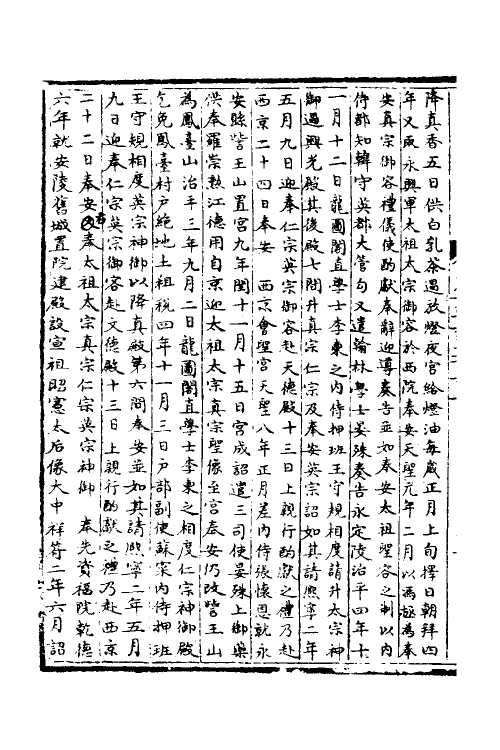 降真香五日供白乳茶遇放燈夜官給燈油每歲正月上旬擇日朝拜四
年又取永興軍太祖太宗御容於西院奉安天聖元年二月以馮拯為奉
安真宗御容禮儀使酌獻奉辭迎導奏告並如奉安太祖聖容之制以內
侍都知韓守英都大管勾又遣翰林學士晏殊奏告永定陵治平四年十
一月十二日龍圖閣直學士李柬之內侍押班王守規相度請升太宗神
御過興先殿其後殿七間升真宗仁宗及奉安英宗詔如其請熙寧二年
五月九日迎奉仁宗英宗御容赴天德殿十三日上親行酌獻之禮乃赴
西京二十四日奉安 西京會聖宮天聖八年正月差內侍張懷恩就永
安縣訾王山置宮九年閏十一月十五日宮成詔遣三司使晏殊上御藥
供奉羅崇勲江德用自京迎太祖太宗真宗聖像至宮奉安仍改訾王山
為鳳臺山治平三年九月二日龍圖閣直學士李柬之相度仁宗神御殿
乞免鳳臺村戶絕地土租稅四年十一月三日戶部副使蘇寀內侍押班
王守規相度英宗神御以降真殿第六間奉安並如其請熙寧二年五月
九日迎奉仁宗英宗御容赴文德殿十三日上親行酌獻之禮乃赴西京
二十二日奉安奉太祖太宗真宗仁宗英宗神御 奉先資福院乾德
六年就安陵舊城置院建殿設宣祖昭憲太后像大中祥符二年六月詔